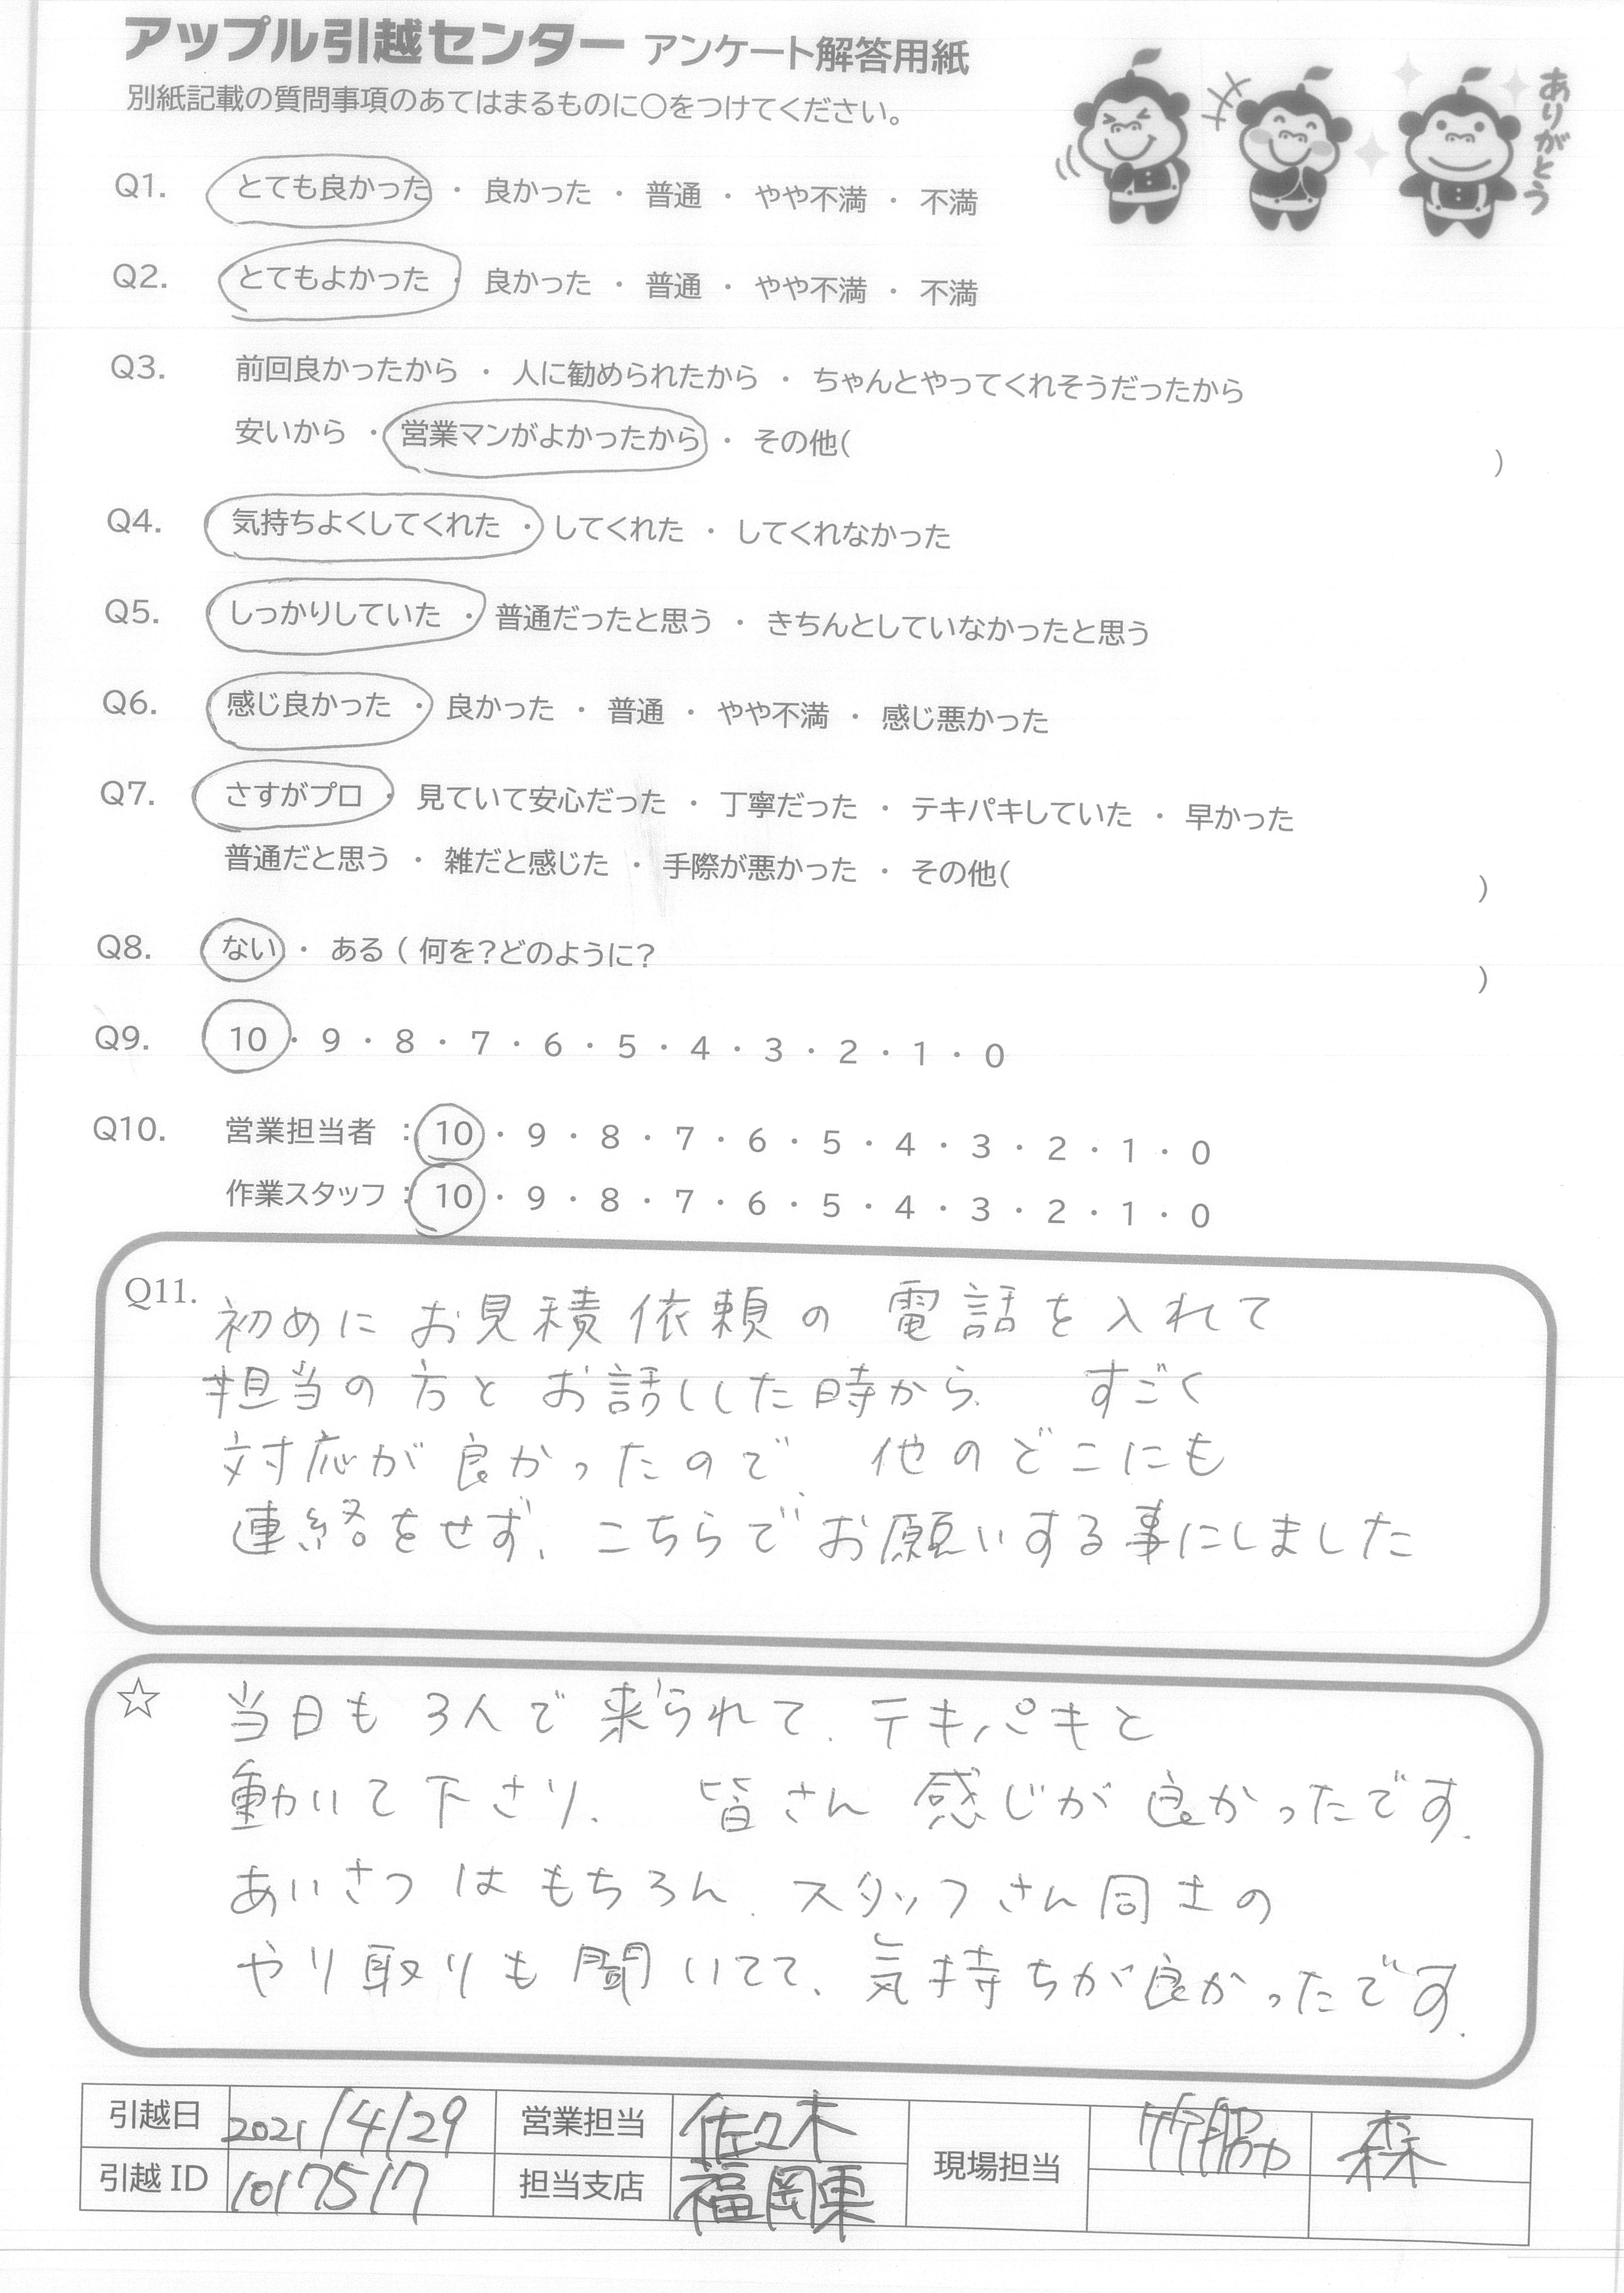 アップル引越センター アンケート解答用紙
別紙記載の質問事項のあてはまるものに○をつけてください。
ありがとう
Q1. とても良かった ・ 良かった ・ 普通 ・ やや不満 ・ 不満
Q2. とてもよかった ・ 良かった ・ 普通 ・ やや不満 ・ 不満
Q3. 前回良かったから ・ 人に勧められたから ・ ちゃんとやってくれそうだったから
安いから ・ 営業マンがよかったから ・ その他( )
Q4. 気持ちよくしてくれた ・ してくれた ・ してくれなかった
Q5. しっかりしていた ・ 普通だったと思う ・ きちんとしていなかったと思う
Q6. 感じ良かった ・ 良かった ・ 普通 ・ やや不満 ・ 感じ悪かった
Q7. さすがプロ ・ 見ていて安心だった ・ 丁寧だった ・ テキパキしていた ・ 早かった
普通だと思う ・ 雑だと感じた ・ 手際が悪かった ・ その他( )
Q8. ない ・ ある ( 何を?どのように? )
Q9. 10 ・ 9 ・ 8 ・ 7 ・ 6 ・ 5 ・ 4 ・ 3 ・ 2 ・ 1 ・ 0
Q10. 営業担当者 : 10 ・ 9 ・ 8 ・ 7 ・ 6 ・ 5 ・ 4 ・ 3 ・ 2 ・ 1 ・ 0
作業スタッフ : 10 ・ 9 ・ 8 ・ 7 ・ 6 ・ 5 ・ 4 ・ 3 ・ 2 ・ 1 ・ 0
Q11. 初めに お見積依頼の 電話を入れて
担当の方と お話しした時から すごく
対応が良かったので 他のどこにも
連絡をせず、こちらでお願いする事にしました
☆ 当日も 3人で来られて、テキパキと
動いて下さり、 皆さん 感じが良かったです.
あいさつはもちろん、スタッフさん同士の
やり取りも聞いてて、気持ちが良かったです.
引越日 2021/4/29 営業担当 佐々木 現場担当 竹脇 森
引越ID 1017517 担当支店 福岡東